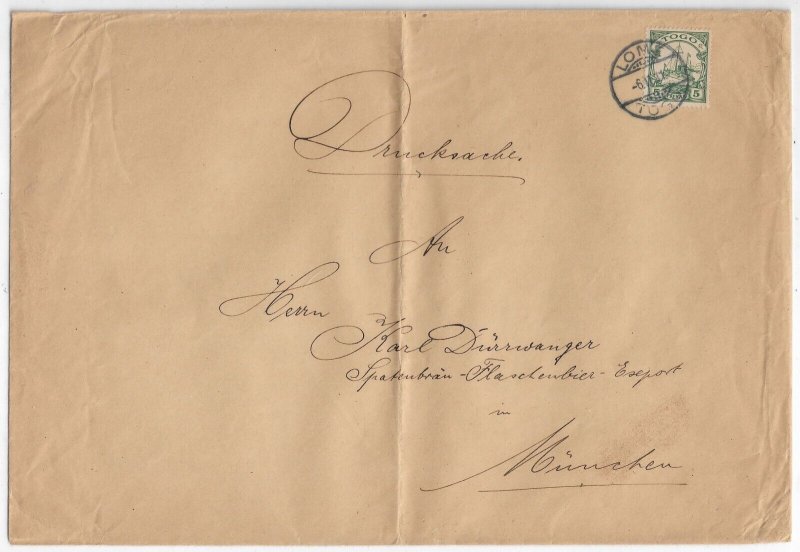 TOGO
5 5
LOME
TO
Drucksache.
An
Herrn
Karl Dürrwanger
Spatenbräu-Flaschenbier-Export
in
München